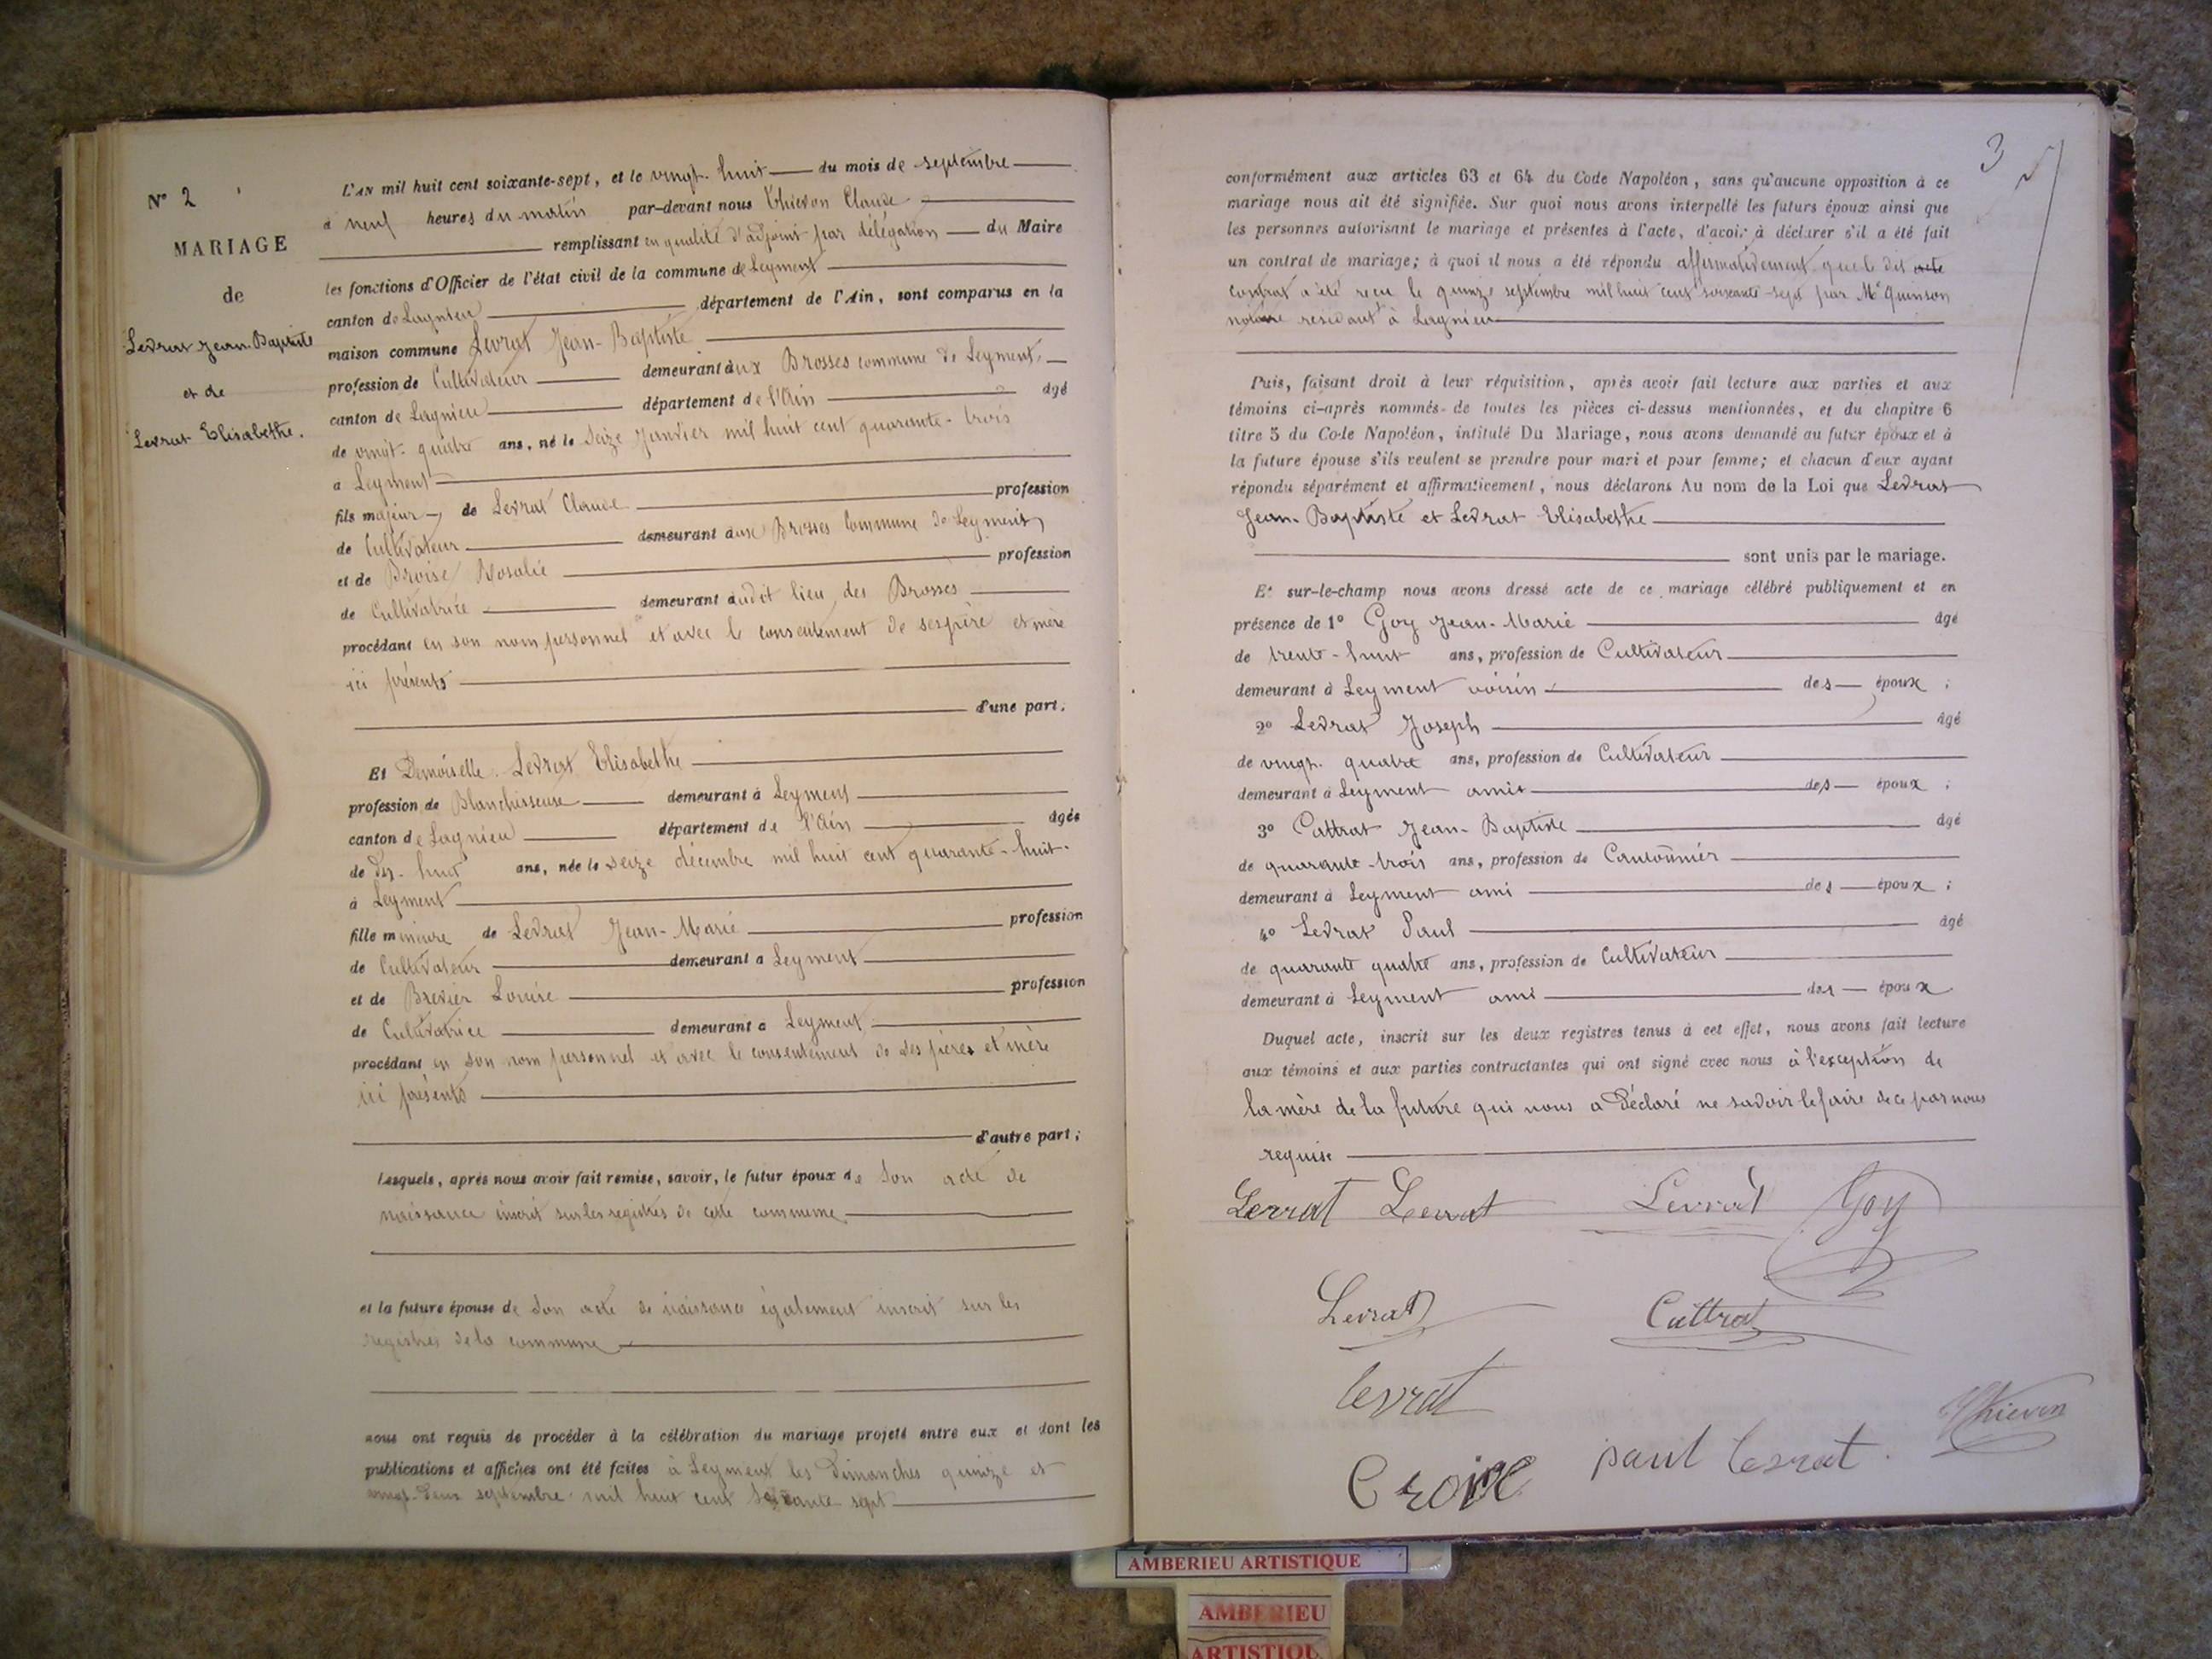 N° 2
MARIAGE
de
Levrat Jean-Baptiste
et de
Levrat Elisabethe.
L'AN mil huit cent soixante-sept, et le vingt-huit du mois de septembre
à neuf heures du matin par-devant nous Thievon Claude
remplissant en qualité d'adjoint par délégation du Maire
les fonctions d'Officier de l'état civil de la commune de Leyment
canton de Lagnieu département de l'Ain, sont comparus en la
maison commune Levrat Jean-Baptiste
profession de Cultivateur demeurant aux Brosses commune de Leyment,
canton de Lagnieu département de l'Ain âgé
de vingt-quatre ans, né le seize Janvier mil huit cent quarante-trois
a Leyment
fils majeur de Levrat Claude profession
de Cultivateur demeurant aux Brosses Commune de Leyment
et de Rosalie profession
de Cultivatrice demeurant audit lieu des Brosses
procédant en son nom personnel et avec le consentement de ses père et mère
ici présents
d'une part,
Et Demoiselle Levrat Elisabethe
profession de Blanchisseuse demeurant à Leyment
canton de Lagnieu département de l'Ain âgée
de dix-huit ans, née le seize décembre mil huit cent quarante-huit.
à Leyment
fille mineure de Levrat Jean-Marie profession
de Cultivateur demeurant a Leyment
et de Brevier Louise profession
de Cultivatrice demeurant a Leyment
procédant en son nom personnel et avec le consentement de ses pères et mère
ici présents
d'autre part;
Lesquels, après nous avoir fait remise, savoir, le futur époux de son acte de
naissance inscrit sur les registres de cette commune
et la future épouse de son acte de naissance également inscrit sur les
registres de la commune
nous ont requis de procéder à la célébration du mariage projeté entre eux et dont les
publications et affiches ont été faites à Leyment les Dimanches quinze et
vingt-deux septembre mil huit cent soixante sept
3
conformément aux articles 63 et 64 du Code Napoléon, sans qu'aucune opposition à ce
mariage nous ait été signifiée. Sur quoi nous avons interpellé les futurs époux ainsi que
les personnes autorisant le mariage et présentes à l'acte, d'avoir à déclarer s'il a été fait
un contrat de mariage; à quoi il nous a été répondu affirmativement que le dit acte
contrat a été reçu le quinze septembre mil huit cent soixante-sept par Me Quinson
notaire résidant à Lagnieu
Puis, faisant droit à leur réquisition, après avoir fait lecture aux parties et aux
témoins ci-après nommés de toutes les pièces ci-dessus mentionnées, et du chapitre 6
titre 5 du Code Napoléon, intitulé Du Mariage, nous avons demandé au futur époux et à
la future épouse s'ils veulent se prendre pour mari et pour femme; et chacun d'eux ayant
répondu séparément et affirmativement, nous déclarons Au nom de la Loi que Levrat
Jean-Baptiste et Levrat Elisabethe
sont unis par le mariage.
Et sur-le-champ nous avons dressé acte de ce mariage célébré publiquement et en
présence de 1° Goy Jean-Marie âgé
de trente-huit ans, profession de Cultivateur
demeurant à Leyment voisin des époux;
2° Levrat Joseph âgé
de vingt-quatre ans, profession de Cultivateur
demeurant à Leyment ami des époux;
3° Cattrat Jean-Baptiste âgé
de quarante-trois ans, profession de Cantonnier
demeurant à Leyment ami des époux;
4° Levrat Paul âgé
de quarante quatre ans, profession de Cultivateur
demeurant à Leyment ami des époux
Duquel acte, inscrit sur les deux registres tenus à cet effet, nous avons fait lecture
aux témoins et aux parties contractantes qui ont signé avec nous à l'exception de
la mère de la future qui nous a déclaré ne savoir le faire de ce par nous
requise
Levrat Levrat Levrat Goy
Levrat Cattrat
levrat
paul levrat. Thievon
AMBERIEU ARTISTIQUE
AMBERIEU
ARTISTIQU